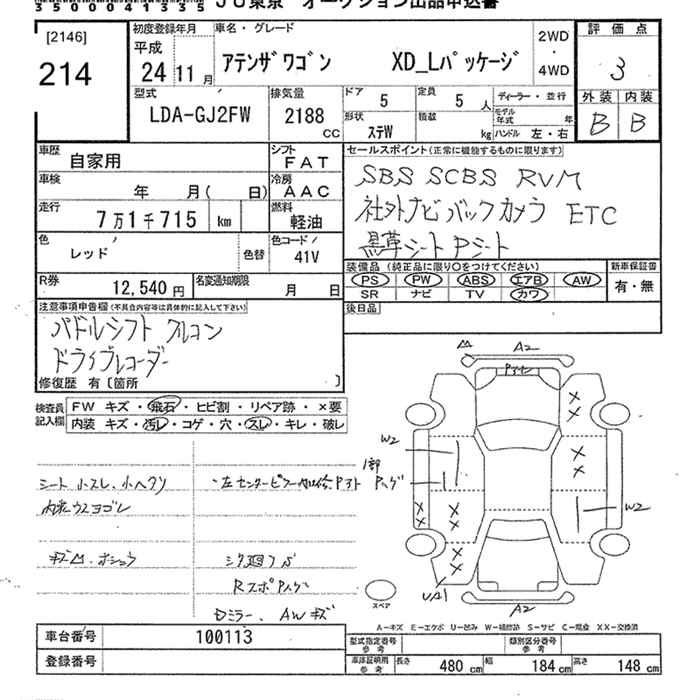 350500041535 JU東京 オークション出品申込書
[2146]
214
初度登録年月
平成
24年11月
車名・グレード
アテンザワゴン XD_Lパッケージ
2WD
・
4WD
評価点
3
外装 内装
B B
型式
LDA-GJ2FW
排気量
2188
CC
ドア 5
定員 5 人
ディーラー・並行
形状 ステW
積載 kg
モデル年式 年
ハンドル 左・右
車歴 自家用
シフト FAT
車検 年 月( 日)
冷房 AAC
走行 7万1千715 km
燃料 軽油
色 レッド
色替
色コード 41V
R券 12,540 円
名変通知期限 月 日
セールスポイント(正常に機能するものに限ります)
SBS SCBS RVM
社外ナビ バックカメラ ETC
黒革シート Pシート
装備品(純正品に限り○をつけてください)
PS PW ABS エアB AW
SR ナビ TV カワ
新車保証書
有・無
後日品
注意事項申告欄(不具合内容等は具体的に記入して下さい)
パドルシフト クルコン
ドライブレコーダー
修復歴 有〔箇所 〕
検査員記入欄
FW キズ・飛石・ヒビ割・リペア跡・×要
内装 キズ・汚レ・コゲ・穴・スレ・キレ・破レ
シート小スレ、小ヘタリ
内装ウスヨゴレ
左センターピラー
Rスポ
Dミラー、AWキズ
A2
W2
XX
XX
W2
XX
XX
XX
UA1
A2
スペア
A-キズ E-エクボ U-凹み W-補修跡 S-サビ C-腐食 XX-交換済
車台番号 100113
登録番号
型式指定番号 参考
類別区分番号 参考
車庫証明用 参考 長さ 480 cm 幅 184 cm 高さ 148 cm